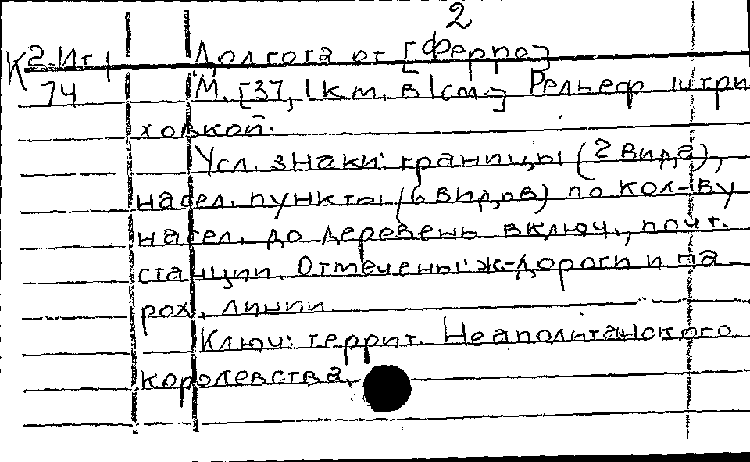 2
К 2-Ит 1 Долгота от [Ферро]
74 М. [37,1км. в 1см.] Рельеф штри
ховкой.
Усл. знаки: границы (2 вида),
насел. пункты (6 видов) по кол-ву
насел. до деревень включ., почт.
станции. Отмечены: ж-дороги и па
рох. линии
Ключ: террит. Неаполитанского
королевства.